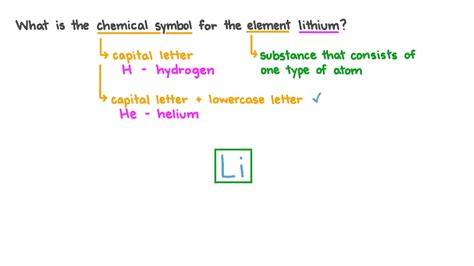 What is the chemical symbol for the element lithium?
capital letter
H - hydrogen
substance that consists of
one type of atom
capital letter + lowercase letter ✓
He - helium
Li